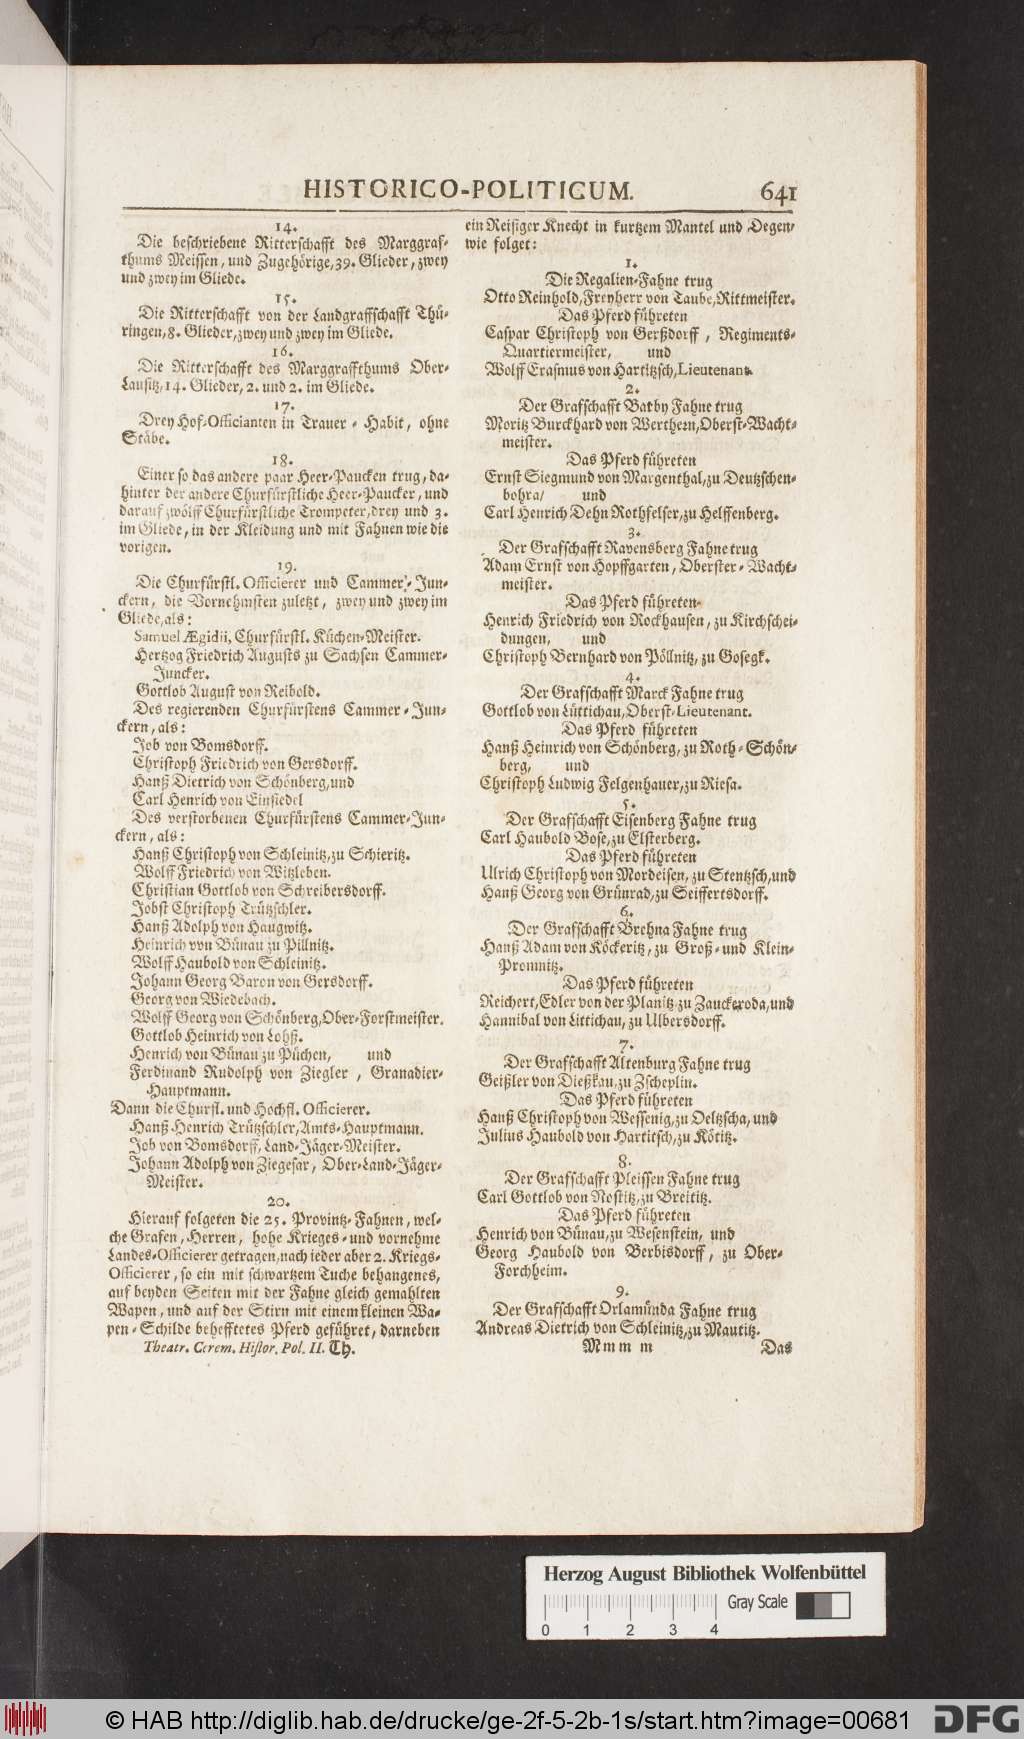 HISTORICO-POLITICUM. 641
14.
Die beschriebene Ritterschafft des Marggraf-
thums Meissen, und Zugehörige, 39. Glieder, zwey
und zwey im Gliede.
15.
Die Ritterschafft von der Landgraffschafft Thü-
ringen, 8. Glieder, zwey und zwey im Gliede.
16.
Die Ritterschafft des Marggraffthums Ober-
Lausitz, 14. Glieder, 2. und 2. im Gliede.
17.
Drey Hof-Officianten in Trauer-Habit, ohne
Stäbe.
18.
Einer so das andere paar Heer-Paucken trug, da-
hinter der andere Churfürstliche Heer-Paucker, und
darauf zwölff Churfürstliche Trompeter, drey und 3.
im Gliede, in der Kleidung und mit Fahnen wie die
vorigen.
19.
Die Churfürstl. Officierer und Cammer-Jun-
ckern, die Vornehmsten zuletzt, zwey und zwey im
Gliede, als:
Samuel Ægidii, Churfürstl. Küchen-Meister.
Hertzog Friedrich Augusts zu Sachsen Cammer-
Juncker.
Gottlob August von Reibold.
Des regierenden Churfürstens Cammer-Jun-
ckern, als:
Job von Bomsdorff.
Christoph Friedrich von Gersdorff.
Hanß Dietrich von Schönberg, und
Carl Henrich von Einsiedel
Des verstorbenen Churfürstens Cammer-Jun-
ckern, als:
Hanß Christoph von Schleinitz, zu Schieritz.
Wolff Friedrich von Witzleben.
Christian Gottlob von Schreibersdorff.
Jobst Christoph Trützschler.
Hanß Adolph von Haugwitz.
Heinrich von Bünau zu Pillnitz.
Wolff Haubold von Schleinitz.
Johann Georg Baron von Gersdorff.
Georg von Wiedebach.
Wolff Georg von Schönberg, Ober-Forstmeister.
Gottlob Heinrich von Lohß.
Henrich von Bünau zu Püchen, und
Ferdinand Rudolph von Ziegler, Granadier-
Hauptmann.
Dann die Churfl. und Hochfl. Officierer.
Hanß Henrich Trützschler, Amts-Hauptmann.
Job von Bomsdorff, Land-Jäger-Meister.
Johann Adolph von Ziegesar, Ober-Land-Jäger-
Meister.
20.
Hierauf folgeten die 25. Provintz-Fahnen, wel-
che Grafen, Herren, hohe Krieges- und vornehme
Landes-Officierer getragen, nach ieder aber 2. Kriegs-
Officierer, so ein mit schwartzem Tuche behangenes,
auf beyden Seiten mit der Fahne gleich gemahlten
Wapen, und auf der Stirn mit einem kleinen Wa-
pen-Schilde behefftetes Pferd geführet, darneben
Theatr. Cerem. Histor. Pol. II. Th.
ein Reisiger Knecht in kurtzem Mantel und Degen,
wie folget:
1.
Die Regalien-Fahne trug
Otto Reinhold, Freyherr von Taube, Rittmeister.
Das Pferd führeten
Caspar Christoph von Gerßdorff, Regiments-
Quartiermeister, und
Wolff Erasmus von Hartitzsch, Lieutenant.
2.
Der Grafschafft Barby Fahne trug
Moritz Burckhard von Werthern, Oberst-Wacht-
meister.
Das Pferd führeten
Ernst Siegmund von Margenthal, zu Deutzschen-
bohra/ und
Carl Henrich Dehn Rothfelser, zu Helffenberg.
3.
Der Grafschafft Ravensberg Fahne trug
Adam Ernst von Hopffgarten, Oberster-Wacht-
meister.
Das Pferd führeten
Henrich Friedrich von Rockhausen, zu Kirchschei-
dungen, und
Christoph Bernhard von Pöllnitz, zu Gosegk.
4.
Der Grafschafft Marck Fahne trug
Gottlob von Lüttichau, Oberst-Lieutenant.
Das Pferd führeten
Hanß Heinrich von Schönberg, zu Roth-Schön-
berg, und
Christoph Ludwig Felgenhauer, zu Riesa.
5.
Der Grafschafft Eisenberg Fahne trug
Carl Haubold Bose, zu Elsterberg.
Das Pferd führeten
Ulrich Christoph von Mordeisen, zu Stentzsch, und
Hanß Georg von Grünrad, zu Seiffertsdorff.
6.
Der Grafschafft Brehna Fahne trug
Hanß Adam von Köckeritz, zu Groß- und Klein-
Promnitz.
Das Pferd führeten
Reichert, Edler von der Planitz zu Zauckeroda, und
Hannibal von Littichau, zu Ulbersdorff.
7.
Der Grafschafft Altenburg Fahne trug
Geißler von Dießkau, zu Zscheplin.
Das Pferd führeten
Hanß Christoph von Wessenig, zu Oeltzscha, und
Julius Haubold von Hartitsch, zu Kötitz.
8.
Der Grafschafft Pleissen Fahne trug
Carl Gottlob von Nostitz, zu Breititz.
Das Pferd führeten
Henrich von Bünau, zu Wesenstein, und
Georg Haubold von Berbisdorff, zu Ober-
Forchheim.
9.
Der Grafschafft Orlamünda Fahne trug
Andreas Dietrich von Schleinitz, zu Mautitz.
Mmm m Das
Herzog August Bibliothek Wolfenbüttel
Gray Scale
0 1 2 3 4
© HAB http://diglib.hab.de/drucke/ge-2f-5-2b-1s/start.htm?image=00681 DFG